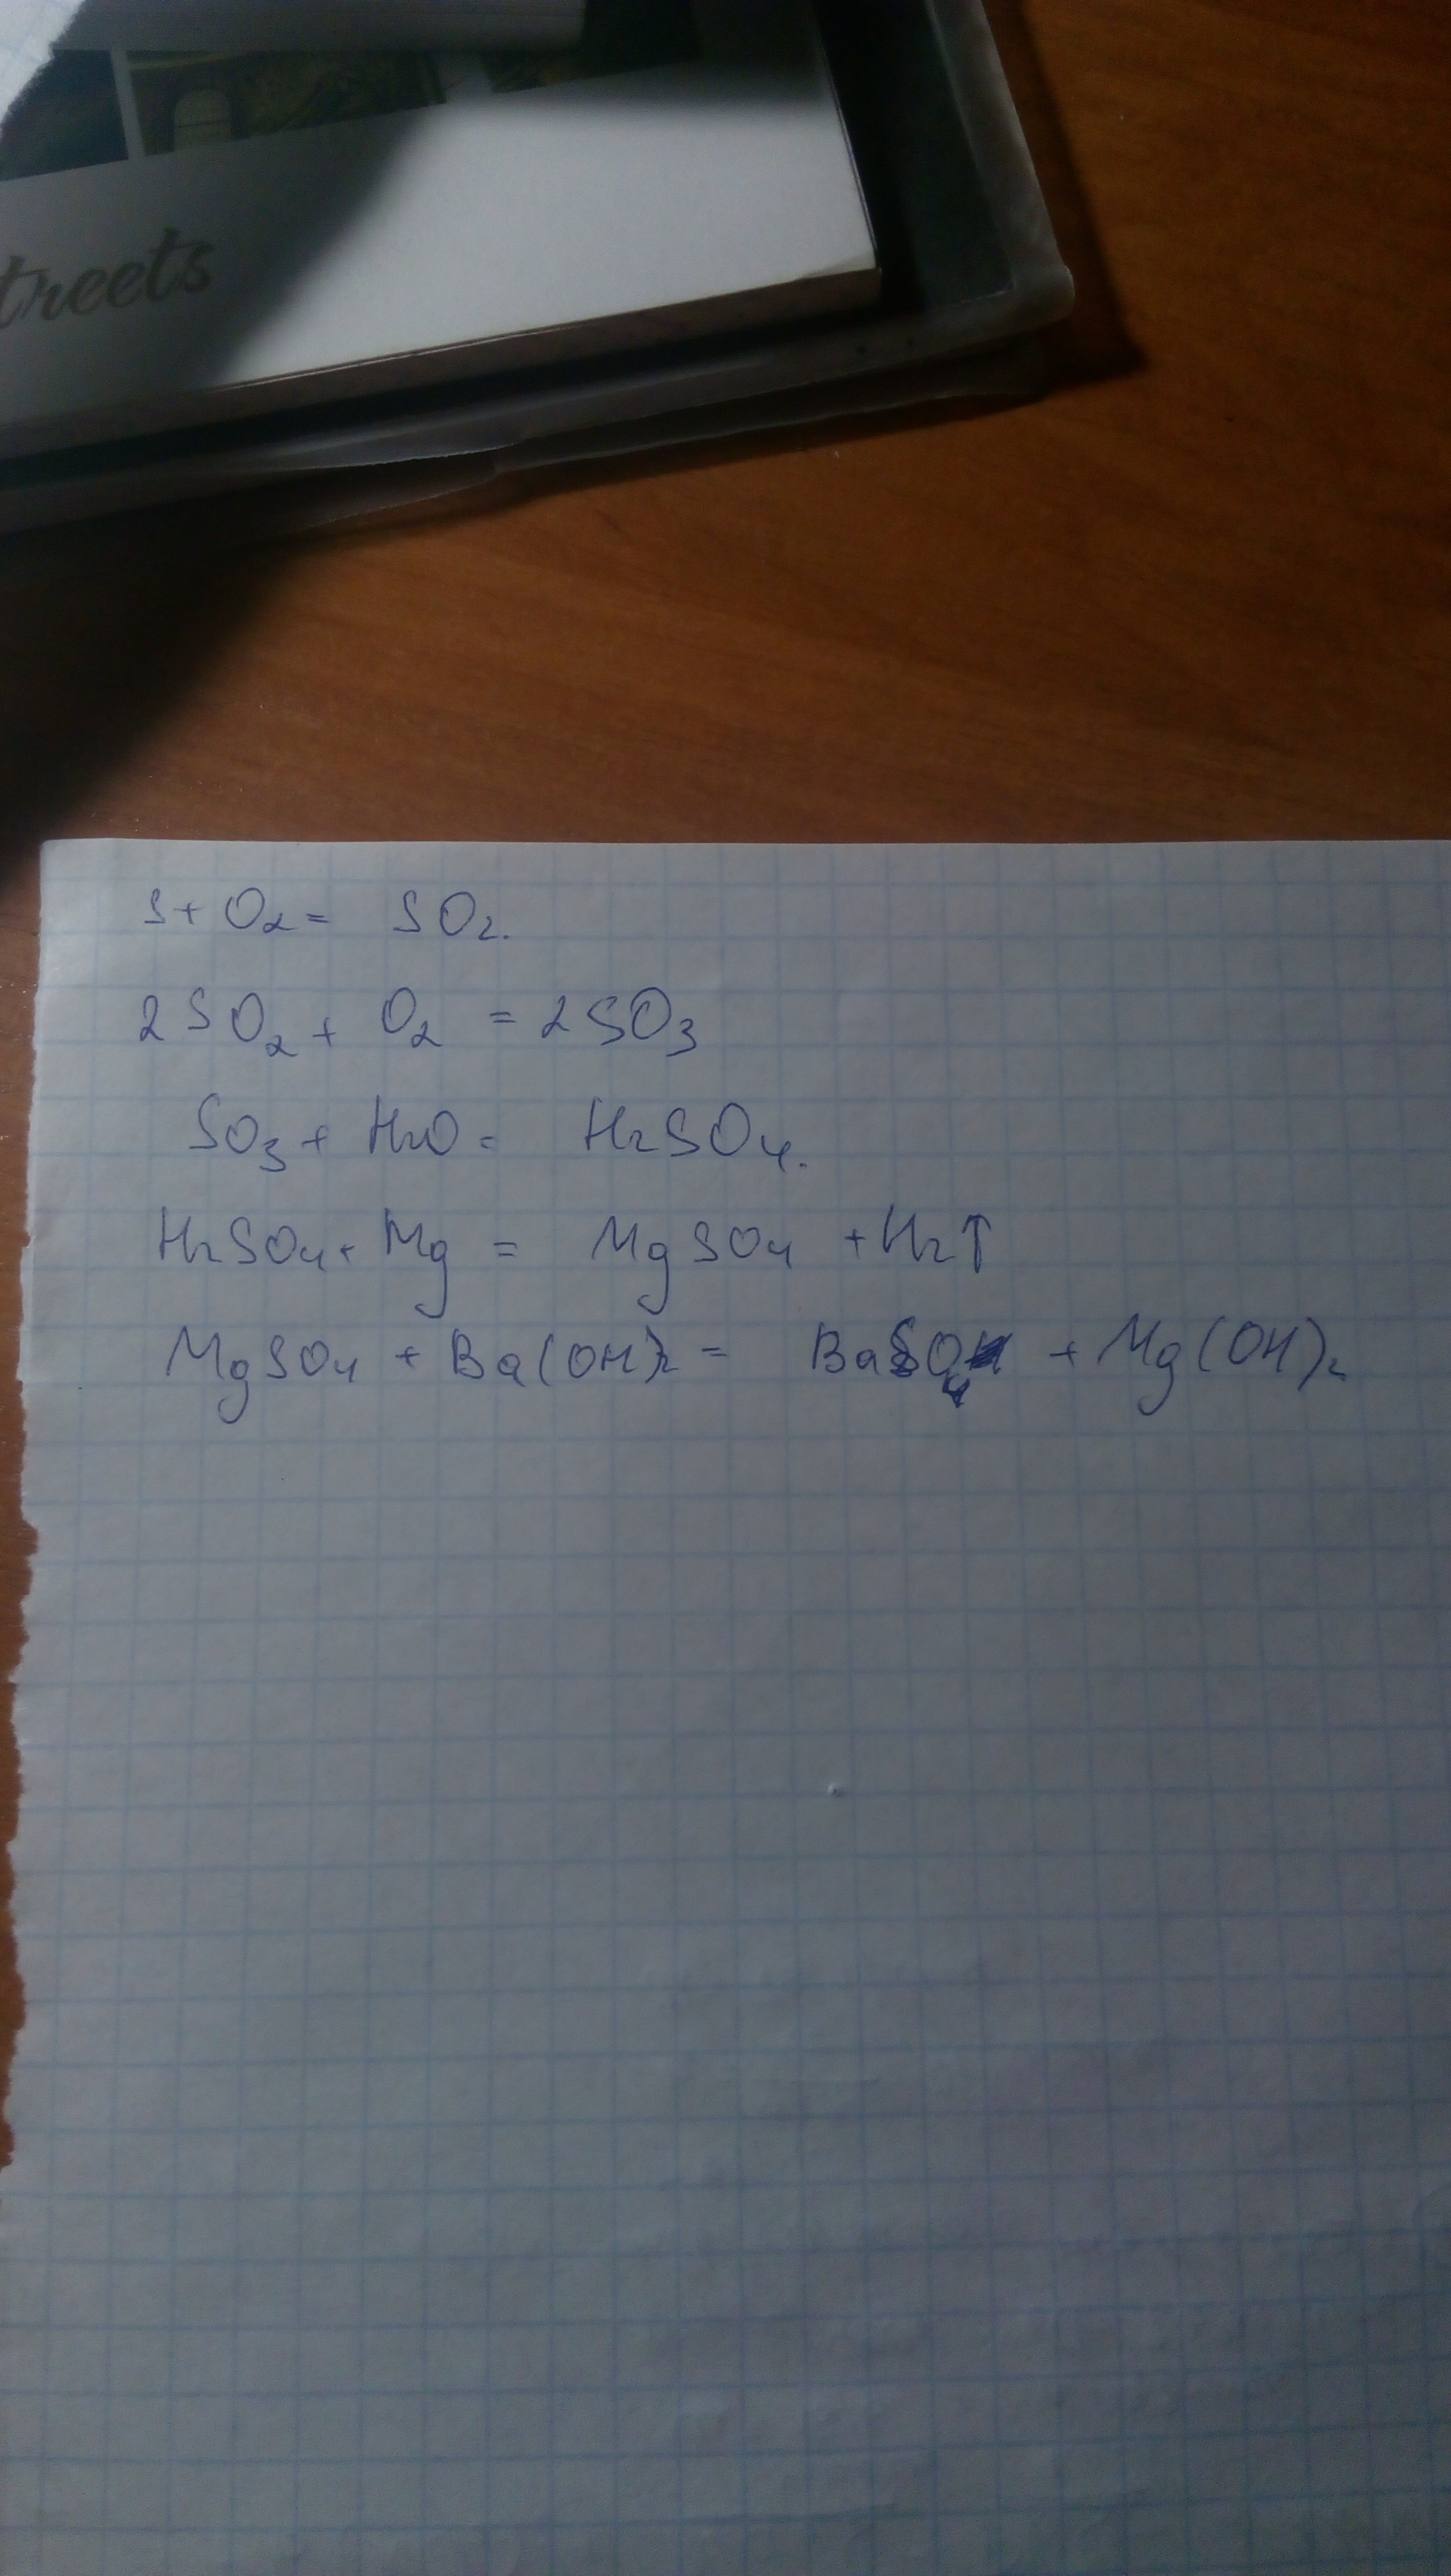 treets
S + O₂ = SO₂.
2SO₂ + O₂ = 2SO₃
SO₃ + H₂O = H₂SO₄.
H₂SO₄ + Mg = MgSO₄ + H₂↑
MgSO₄ + Ba(OH)₂ = BaSO₄ + Mg(OH)₂